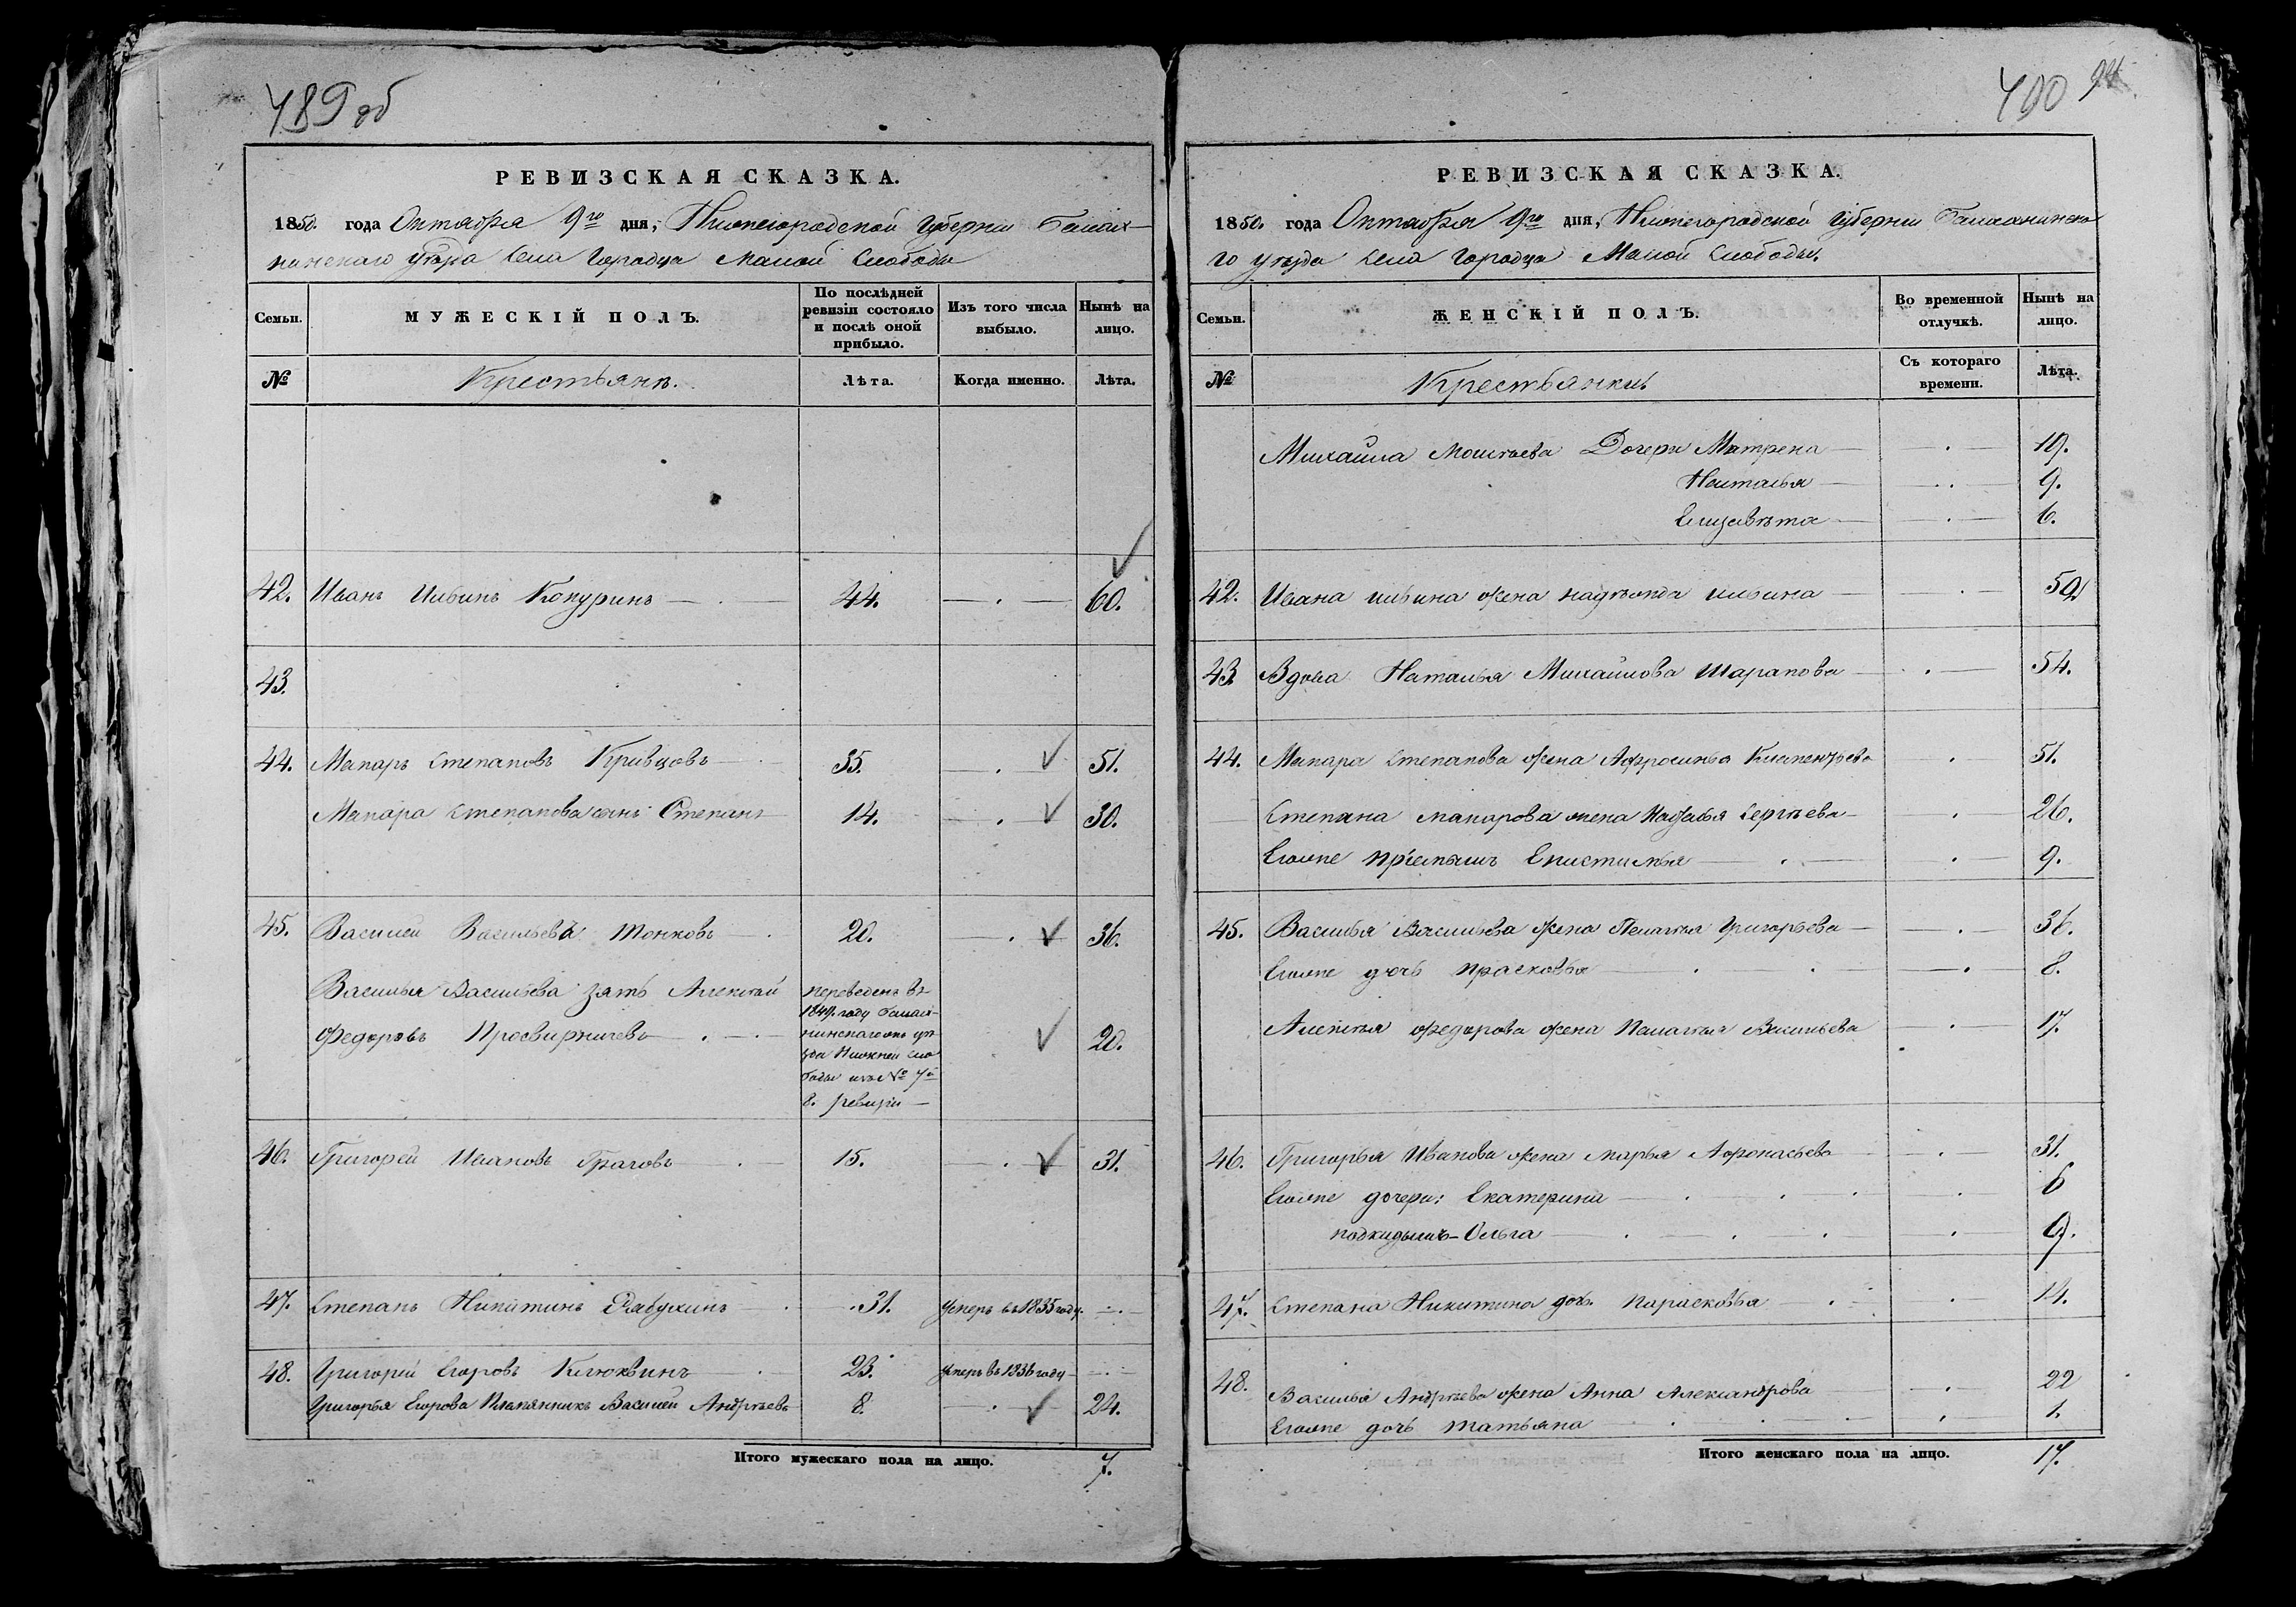 489 об
РЕВИЗСКАЯ СКАЗКА.
1850. года Октября 9го дня, Нижегородской Губернии Балах-
нинскаго уѣзда Села Городца Малой Слободы
Семьи.
МУЖЕСКІЙ ПОЛЪ.
По послѣдней ревизіи состояло и послѣ оной прибыло.
Изъ того числа выбыло.
Нынѣ на лицо.
№
Крестьяне.
Лѣта.
Когда именно.
Лѣта.
42. Иванъ Ильинъ Кокуринъ 44. 60.
43.
44. Макаръ Степановъ Кривцовъ 35. 51.
Макара Степанова сынъ Степанъ 14. 30.
45. Василей Васильевъ Тонковъ 20. 36.
Василья Васильева зять Алексѣй
Федоровъ Просвирничевъ 20.
переведенъ въ
1849. году Балах-
нинскаго
Нижней сло
боды № 7й
8. ревизіи
46. Григорей Ивановъ Грачовъ 15. 31.
47. Степанъ Никитинъ Рябухинъ 31. умеръ въ 1835 году.
48. Григорей Егоровъ Клюквинъ 23. умеръ въ 1836 году
Григорья Егорова Племянникъ Василей Андрѣевъ 8. 24.
Итого мужескаго пола на лицо. 7.
490
94
РЕВИЗСКАЯ СКАЗКА.
1850. года Октября 9го дня, Нижегородской Губернии Балахнинска-
го уѣзда Села Городца Малой Слободы.
Семьи.
ЖЕНСКІЙ ПОЛЪ.
Во временной отлучкѣ.
Нынѣ на лицо.
№
Крестьянки
Съ котораго времени.
Лѣта.
Михайла Моисѣева Дочери Матрена 19.
Наталья 9.
Елизавѣта 6.
42. Ивана Ильина жена Надѣжда Ильина 59.
43. Вдова Наталья Михайлова Шарапова 54.
44. Макара Степанова жена Афросинья Клементьева 51.
Степана Макарова жена Наталья Сергѣева 26.
Еговже пріемышъ Епистимья 9.
45. Василья Васильева жена Пелагѣя Григорьева 36.
Еговже дочь Прасковья 8.
Алексѣя Федорова жена Пелагѣя Васильева 17.
46. Григорья Иванова жена Марья Афонасьева 31.
Еговже дочери: Екатерина 6
подкидышъ - Ольга 9.
47. Степана Никитина дочь Парасковья 14.
48. Василья Андрѣева жена Анна Александрова 22
Еговже дочь Татьяна 1.
Итого женскаго пола на лицо. 17.